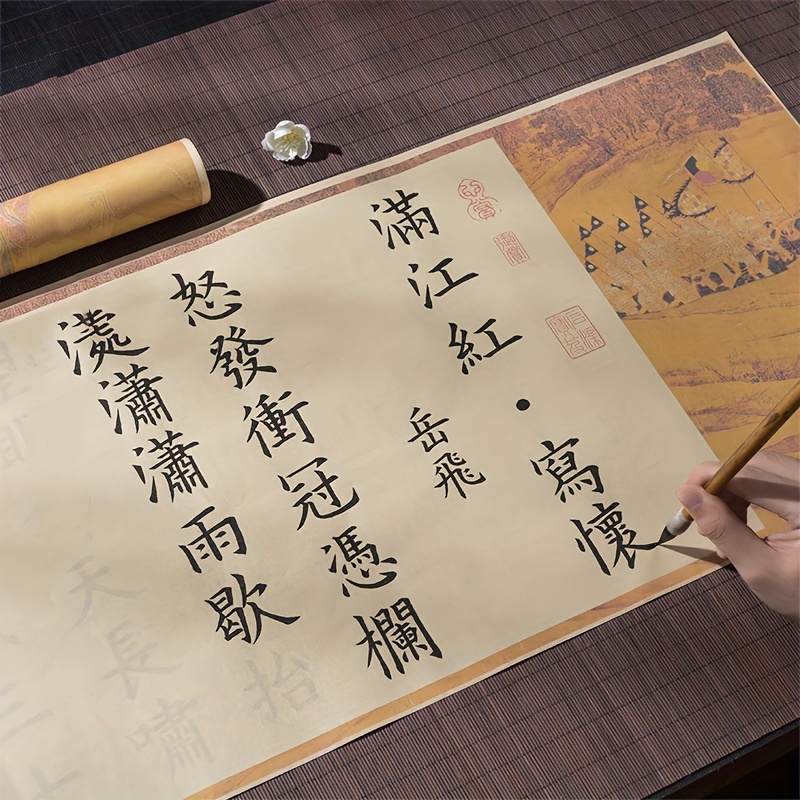 滿江紅·寫懷
岳飛
怒發衝冠憑欄
瀟瀟雨歇
抬
天長嘯
三